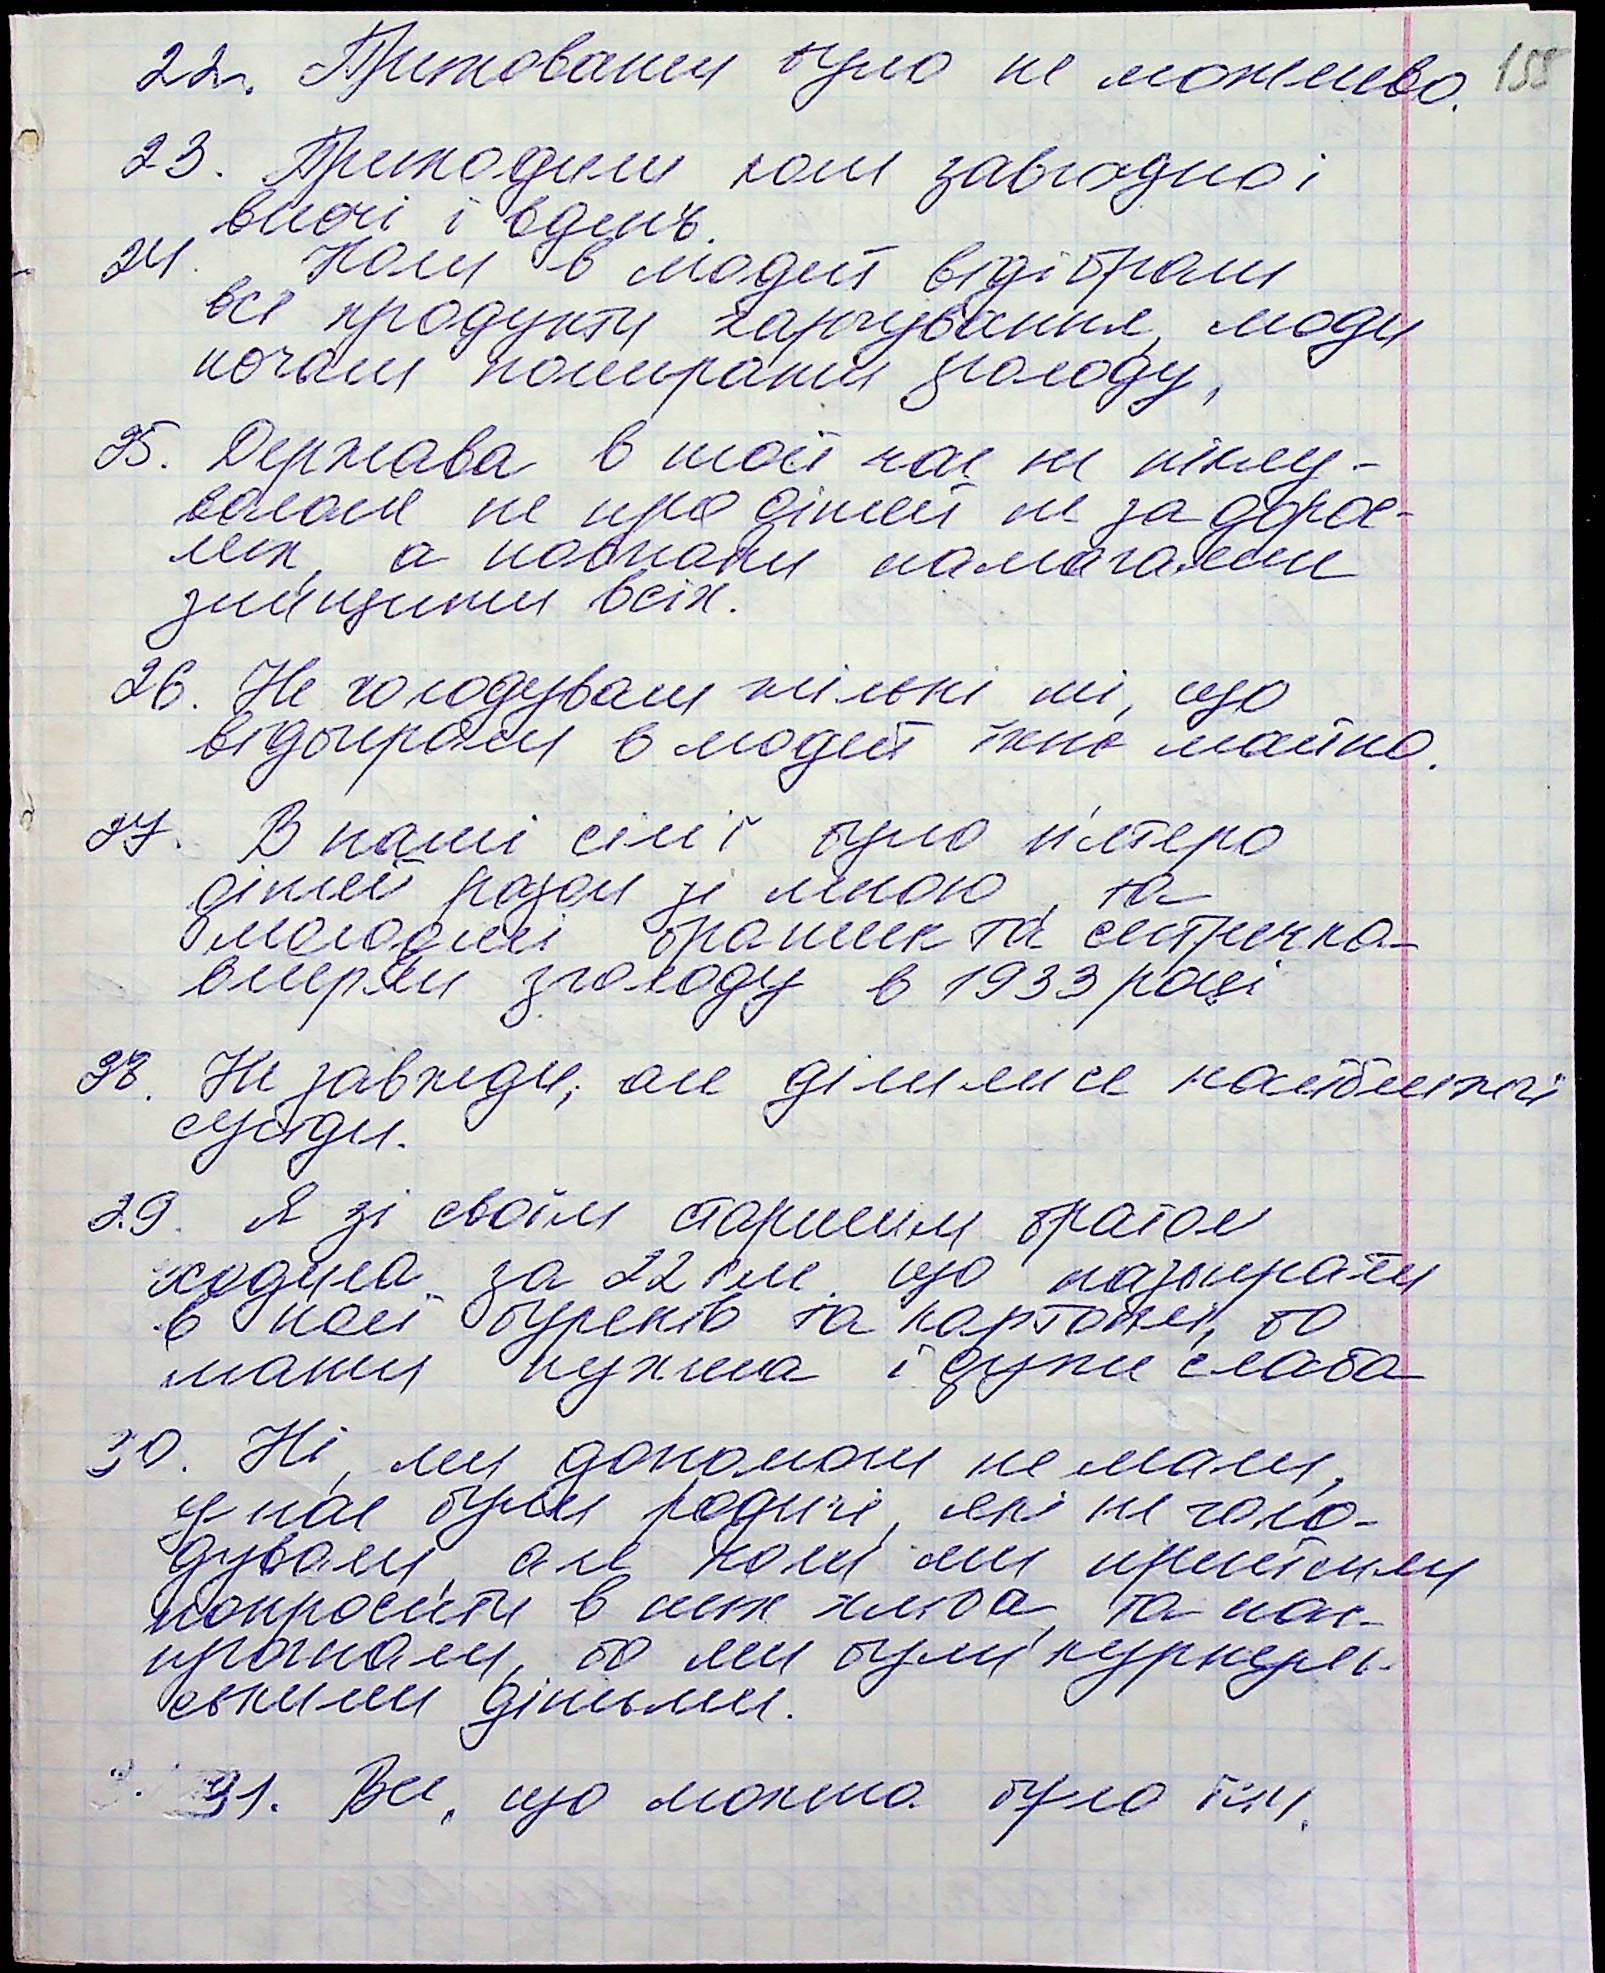 155
22. Приховати було не можливо.
23. Приходили коли завгодно і
вночі і вдень.
24. Коли в людей відібрали
всі продукти харчування, люди
почали помирати зголоду,
25. Держава в той час не піклу-
валася не про дітей не за дорос-
лих, а навпаки намагалися
знищити всіх.
26. Не голодували тільки ті, що
відбирали в людей їхнє майно.
27. В нашій сім'ї було п'ятеро
дітей разом зі мною, та
молодший братик та сестричка
вмерли зголоду в 1933 році
28. Не завжди, але ділилися найближчі
сусіди.
29. Я зі своїм старшим братом
ходила за 22 км що назбирати
в полі буряків та картоплі, бо
мати пухла і дуже слаба
30. Ні, ми допомоги не мали,
у нас були родичі, які не голо-
дували, але коли ми прийшли
попросити в них хліба, та нас
прогнали, бо ми були куркуль-
ськими дітьми.
31. Все, що можна було їсти.